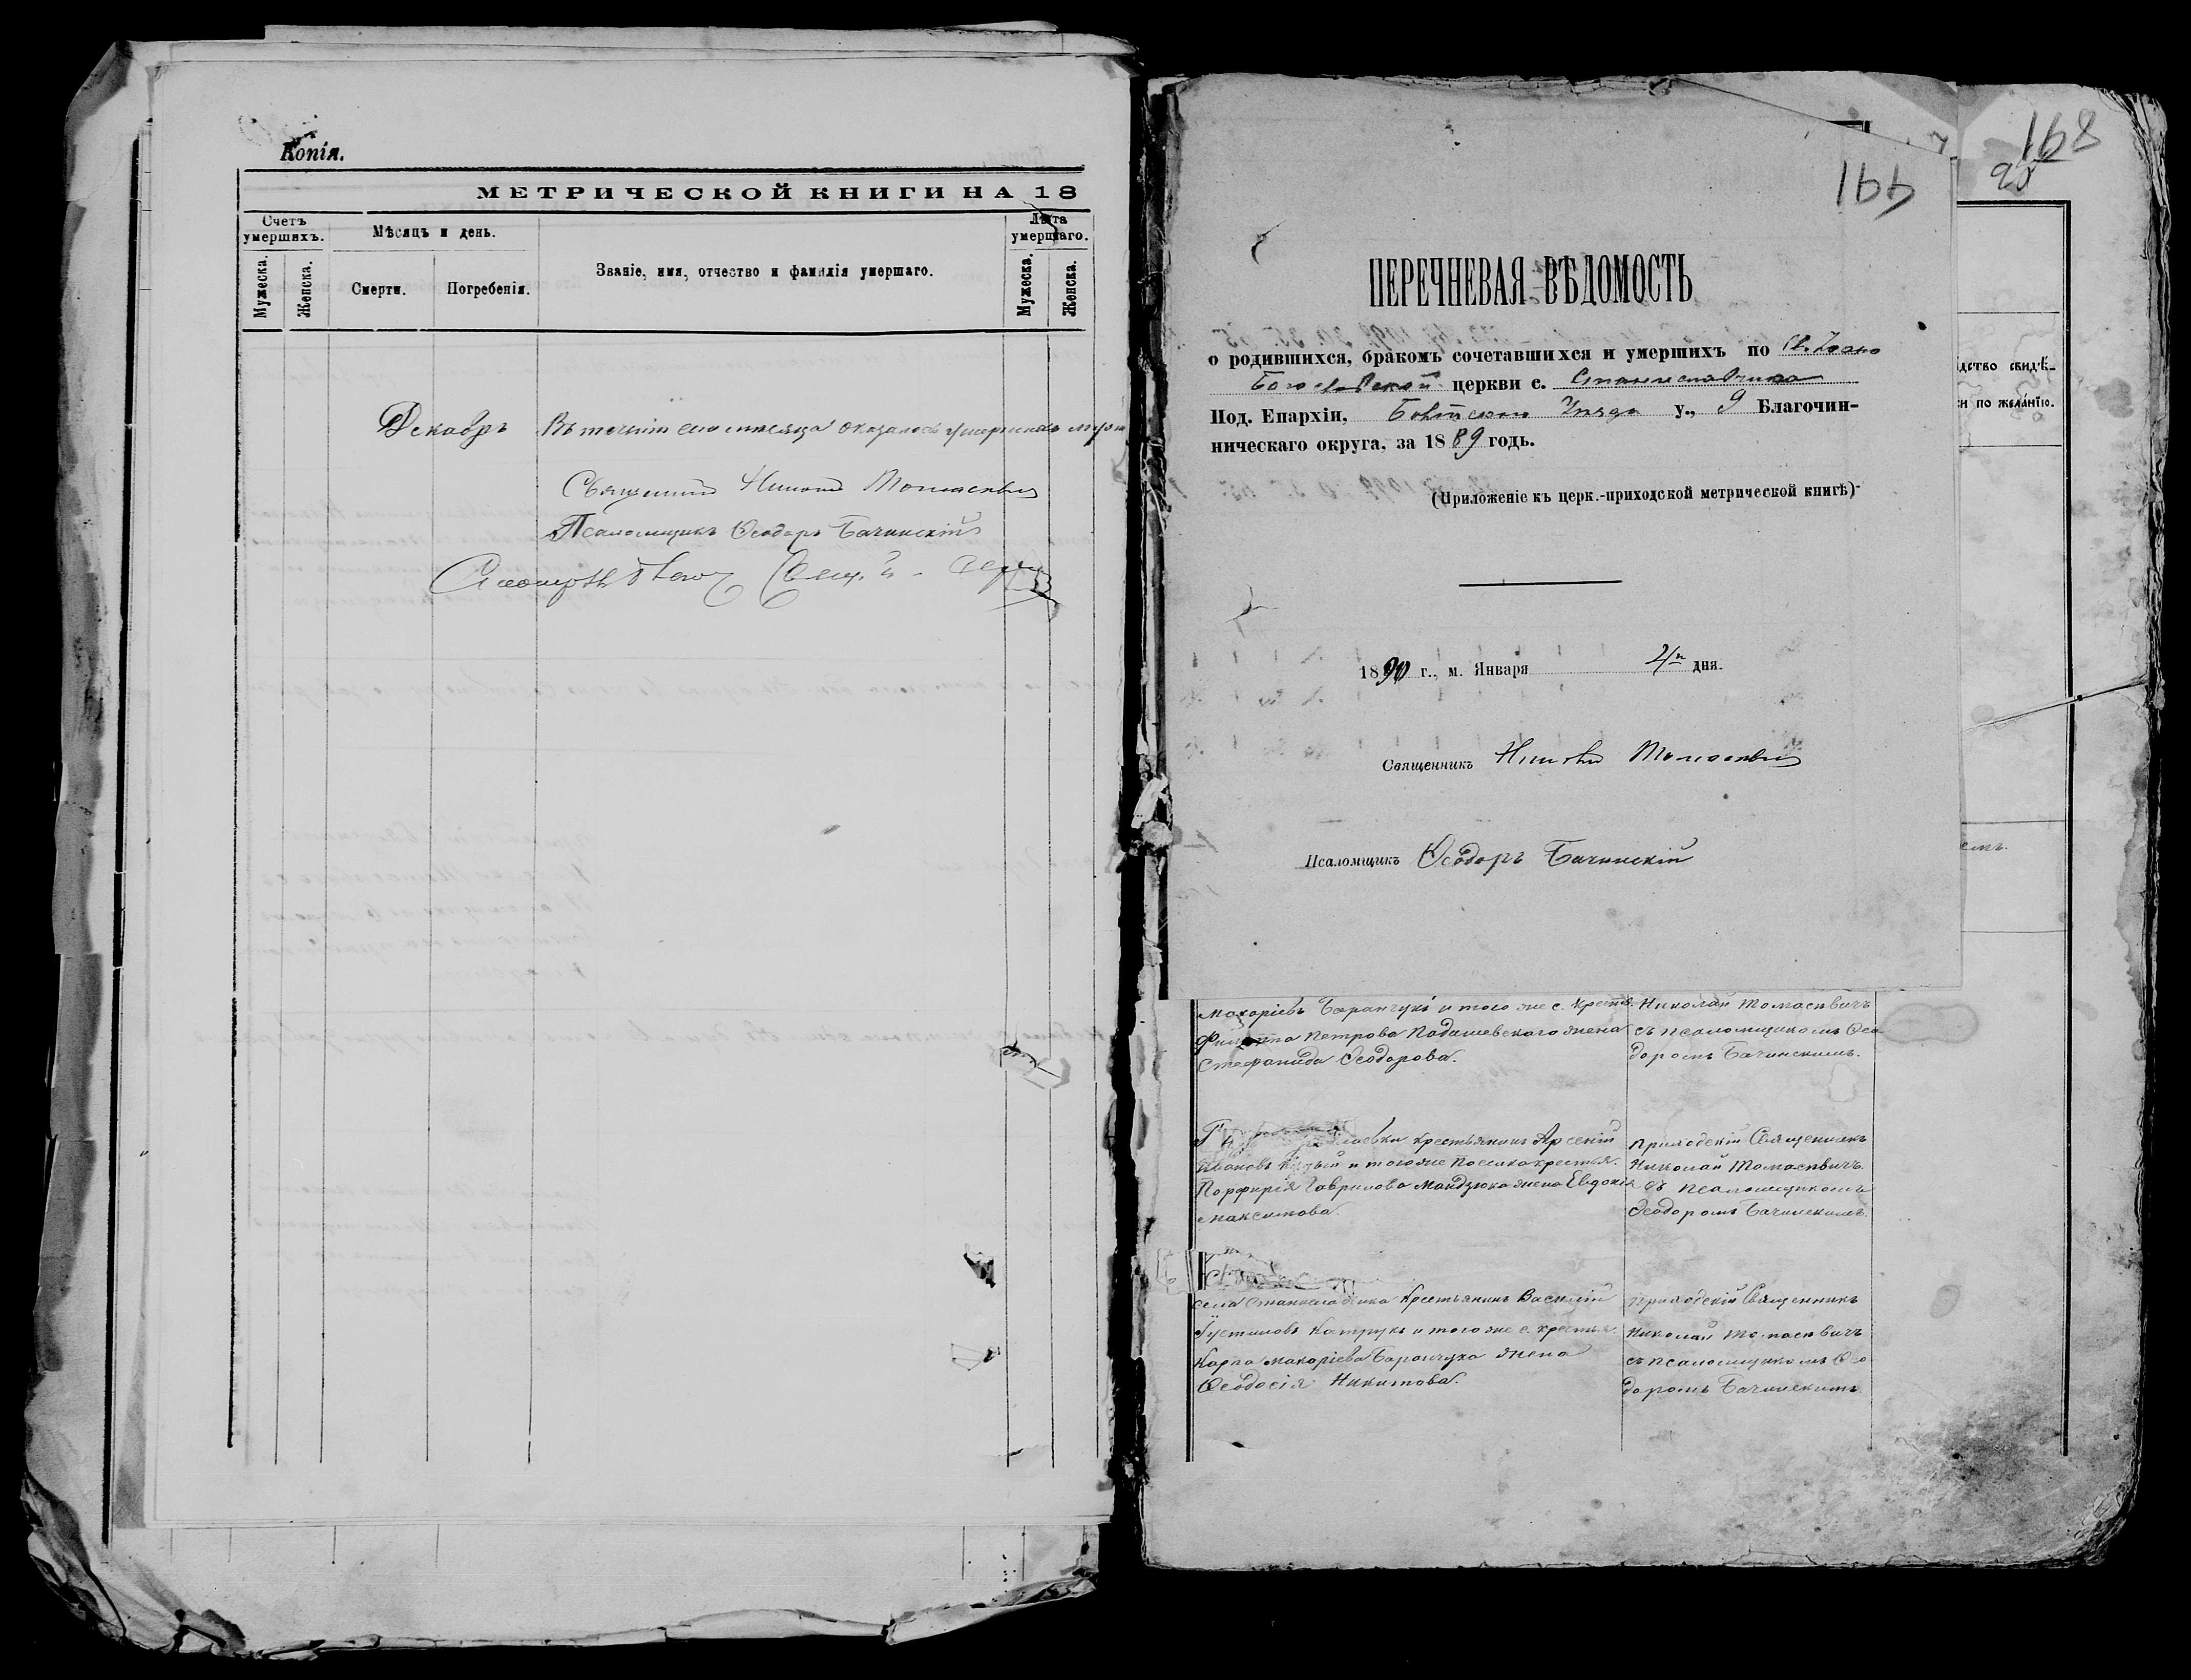 Копія.
МЕТРИЧЕСКОЙ КНИГИ НА 18
Счетъ умершихъ.
Мѣсяцъ и день.
Званіе, имя, отчество и фамилія умершаго.
Лѣта умершаго.
Мужеска.
Женска.
Смерти.
Погребенія.
Мужеска.
Женска.
Декабрь
Въ теченіи сего мѣсяца оказалось умершихъ
Священникъ Николай Томасевичъ
Псаломщикъ Ѳеодоръ Бачинскій
168
166
ПЕРЕЧНЕВАЯ ВѢДОМОСТЬ
о родившихся, бракомъ сочетавшихся и умершихъ по Св. Іоано
Богословской церкви с. Станиславчика
Под. Епархіи, у., 9 Благочин-
ническаго округа, за 1889 годъ.
(Приложеніе къ церк.-приходской метрической книгѣ)
1890 г., м. Января 4го дня.
Священникъ Николай Томасевичъ
Псаломщикъ Ѳеодоръ Бачинскій
свидѣ-
и по желанію.
Макаріевъ Баранчукъ и того же с. крестъ.
Филиппа Петрова Подашевскаго жена
Стефанида Ѳеодорова.
Николай Томасевичъ
съ псаломщикомъ Ѳео
доромъ Бачинскимъ.
крестьянинъ Арсеній
Ивановъ и того же поселка крестья.
Порфирія Гаврилова Мандзюка жена Евдокія
Максимова.
Приходскій Священникъ
Николай Томасевичъ
съ псаломщикомъ
Ѳеодоромъ Бачинскимъ.
села Станиславчика крестьянинъ Василій
Іустиновъ Катрукъ и того же с. крестья.
Карпа Макаріева Баранчука жена
Ѳеодосія Никитова.
Приходскій Священникъ
Николай Томасевичъ
съ псаломщикомъ Ѳео
доромъ Бачинскимъ